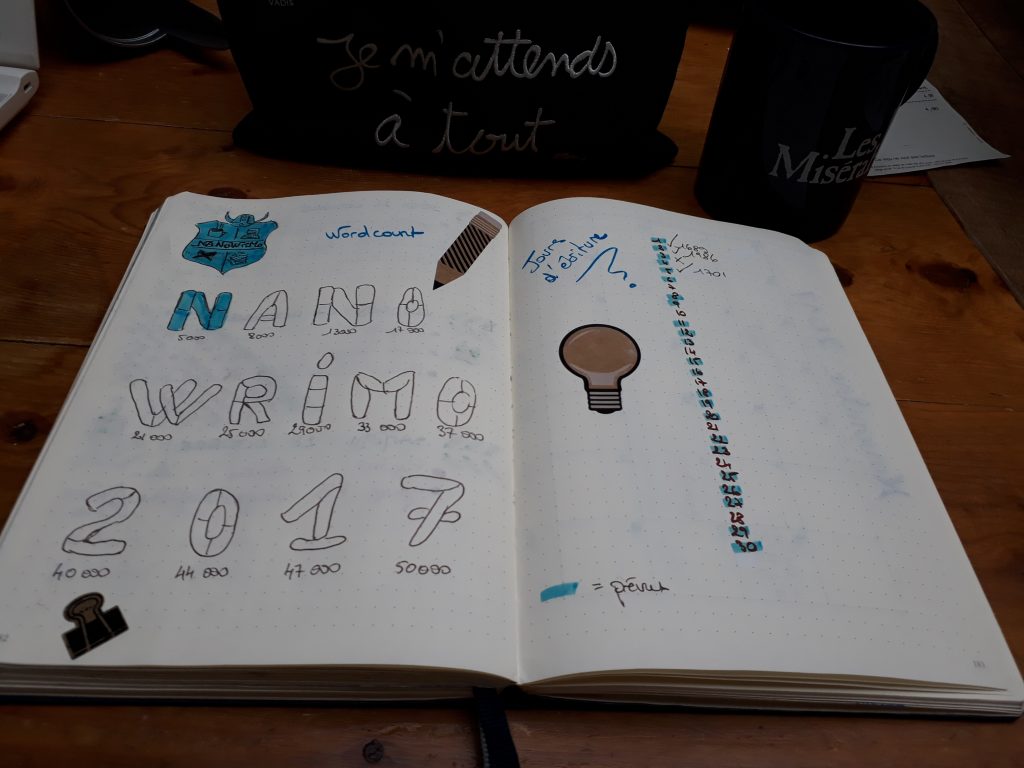 Je m'attends
à tout
Les
Miséra
NaNoWriMo
Wordcount
N A N O
5000 8000 13000 17000
W R I M O
21 000 25 000 29000 33 000 37 000
2 0 1 7
40 000 44 000 47 000 50000
Jours
d'écriture
1689
1986
1701
10
12
13
14
15
16
17
18
19
20
21
22
23
24
25
26
27
28
29
30
= prévus
183